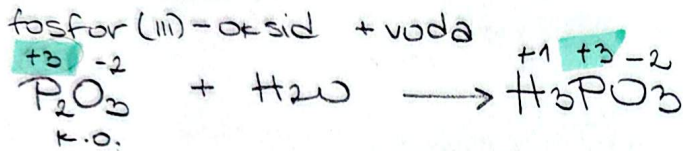 fosfor (III) - oksid + voda
+3 -2 +1 +3 -2
P₂O₃ + H₂O ⟶ H₃PO₃
K.O.